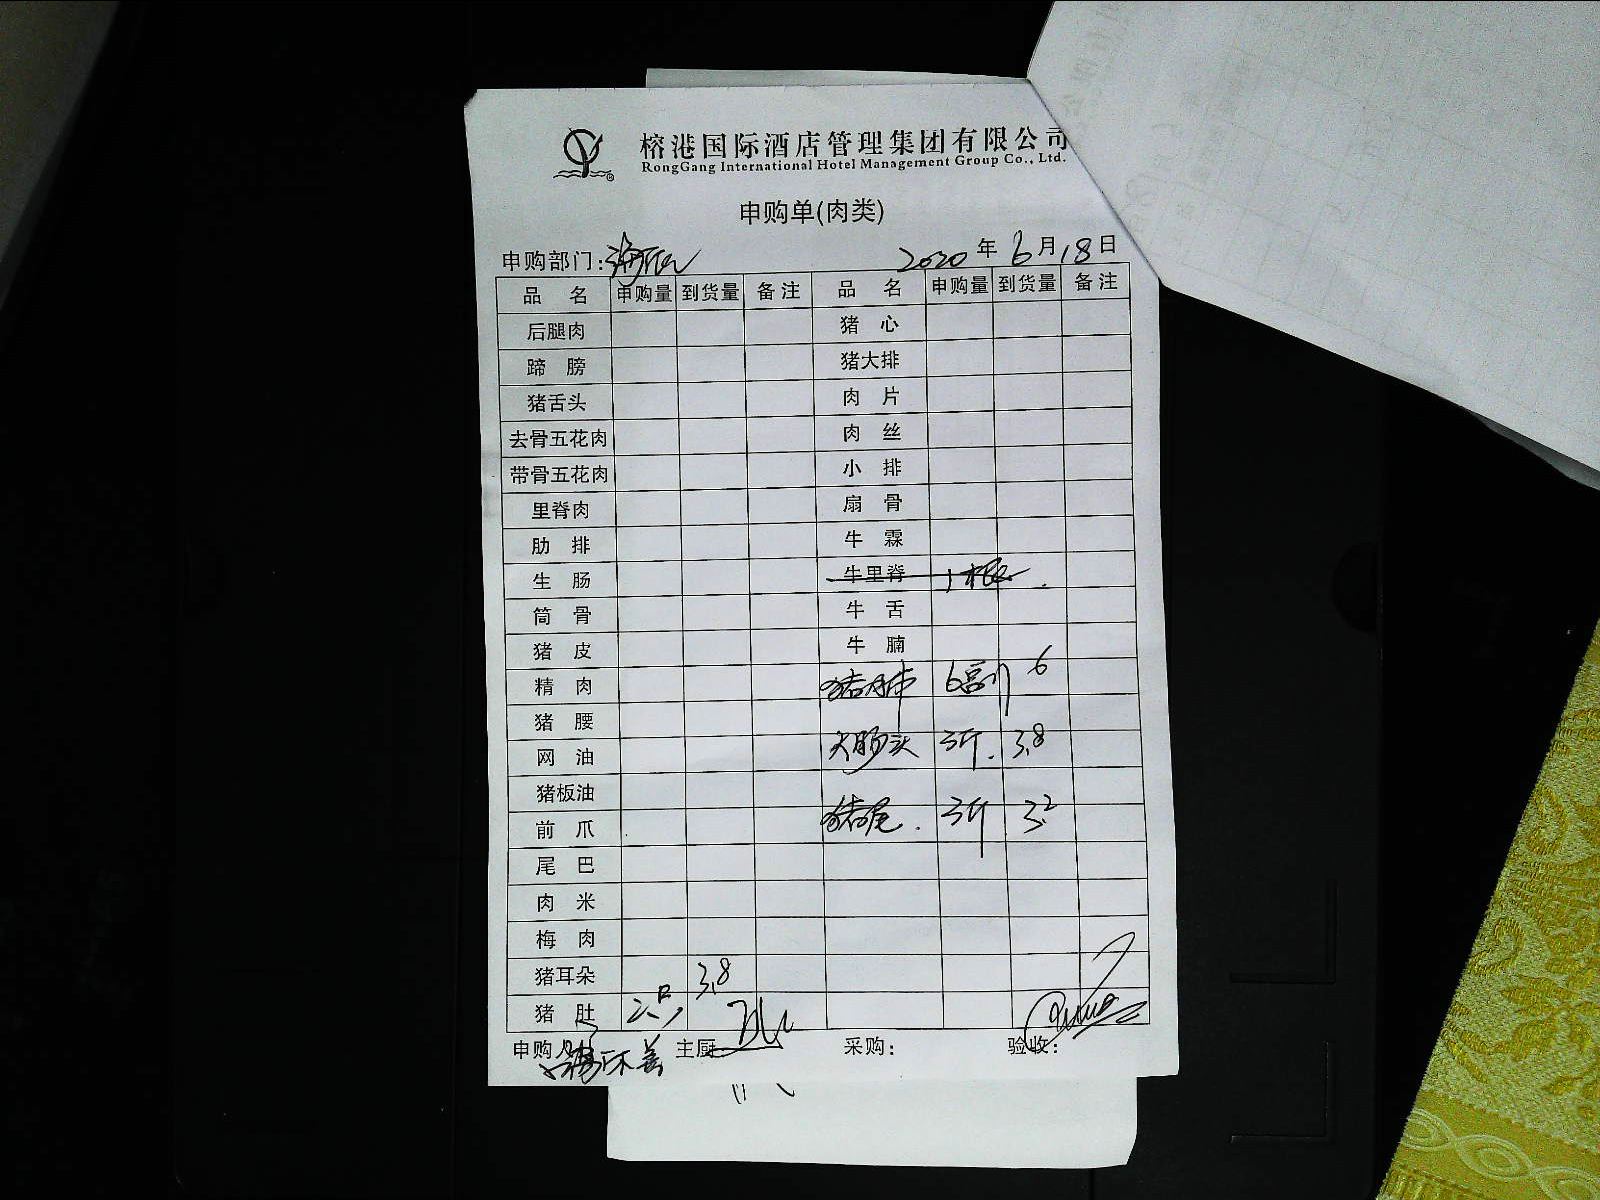 榕港国际酒店管理集团有限公司
RongGang International Hotel Management Group Co., Ltd.
申购单(肉类)
申购部门: 2020年6月18日
品名 申购量 到货量 备注 品名 申购量 到货量 备注
后腿肉 猪心
蹄膀 猪大排
猪舌头 肉片
去骨五花肉 肉丝
带骨五花肉 小排
里脊肉 扇骨
肋排 牛霖
生肠 牛里脊 1根
筒骨 牛舌
猪皮 牛腩
精肉 猪肺 6副 6
猪腰
网油 大肠头 3斤. 3.8
猪板油
前爪 猪尾. 3斤 3.2
尾巴
肉米
梅肉
猪耳朵 3.8
猪肚 2只
申购人 主厨 采购: 验收: